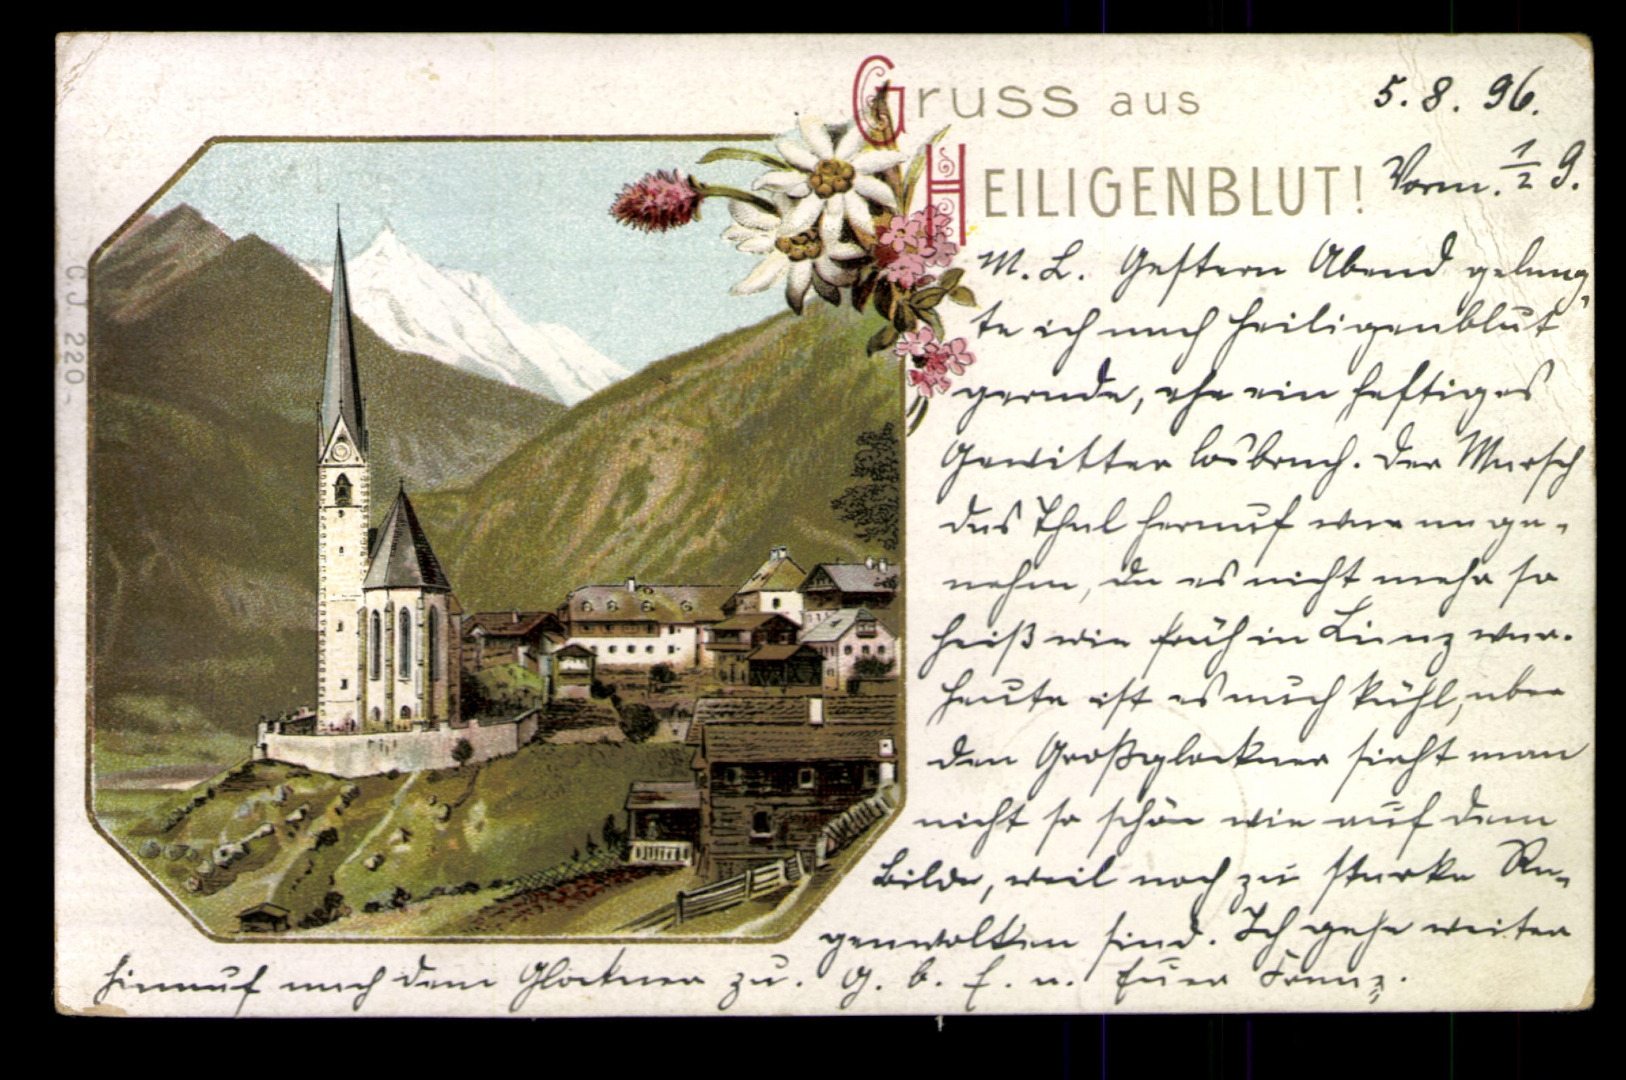 Gruss aus
HEILIGENBLUT!
5. 8. 96.
Vorm. 1/2 9.
M. L. Gestern Abend gelang-
te ich nach Heiligenblut
gerade, ehe ein heftiges
Gewitter losbrach. Der Marsch
das Thal herauf war ange-
nehm, da es nicht mehr so
heiß wie früh in Lienz war.
Heute ist es auch kühl, aber
den Großglockner sieht man
nicht so schön wie auf dem
Bilde, weil noch zu starke Re-
genwolken sind. Ich gehe weiter
hinauf nach dem Glockner zu. G. b. E. u. Euer Franz.
C. J. 220.